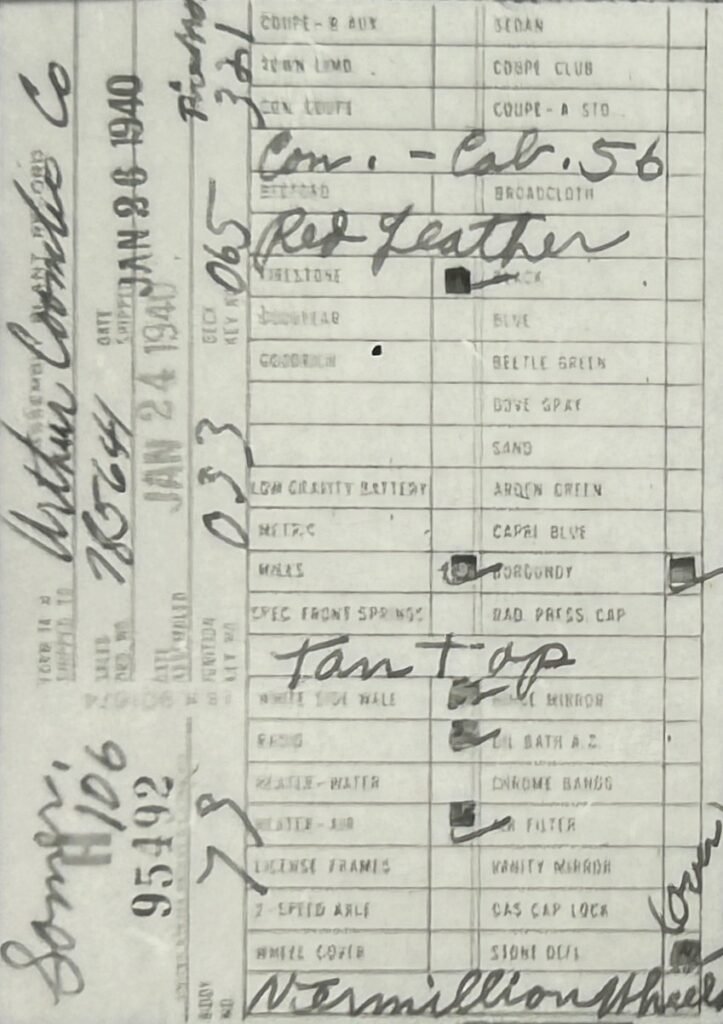 COUPE-B AUX SEDAN
TOWN LIMO COUPE CLUB
CON COUPE COUPE-A STD
Con. - Cab. 56
BEDFORD BROADCLOTH
Red Leather
FIRESTONE BLACK
GOODYEAR BLUE
GOODRICH BEETLE GREEN
DOVE GRAY
SAND
LOW GRAVITY BATTERY ARDEN GREEN
METRIC CAPRI BLUE
MILES BURGUNDY
SPEC FRONT SPRINGS RAD PRESS CAP
Tan Top
WHITE SIDE WALL MIRROR
RADIO OIL BATH A.C.
HEATER-WATER CHROME BANDS
HEATER-AIR AIR FILTER
LICENSE FRAMES VANITY MIRROR
2-SPEED AXLE GAS CAP LOCK
WHEEL COVER STONE DEFL
Over
Vermillion Wheels
ASSEMBLY PLANT RECORD
SHIPPED TO
Arthur Coombs Co
SALES ORD. NO.
785644
DATE SHIPPED
JAN 26 1940
DATE
JAN 24 1940
IGNITION KEY NO.
033
DECK KEY NO.
065
321
H
106
95492
BODY NO.
79